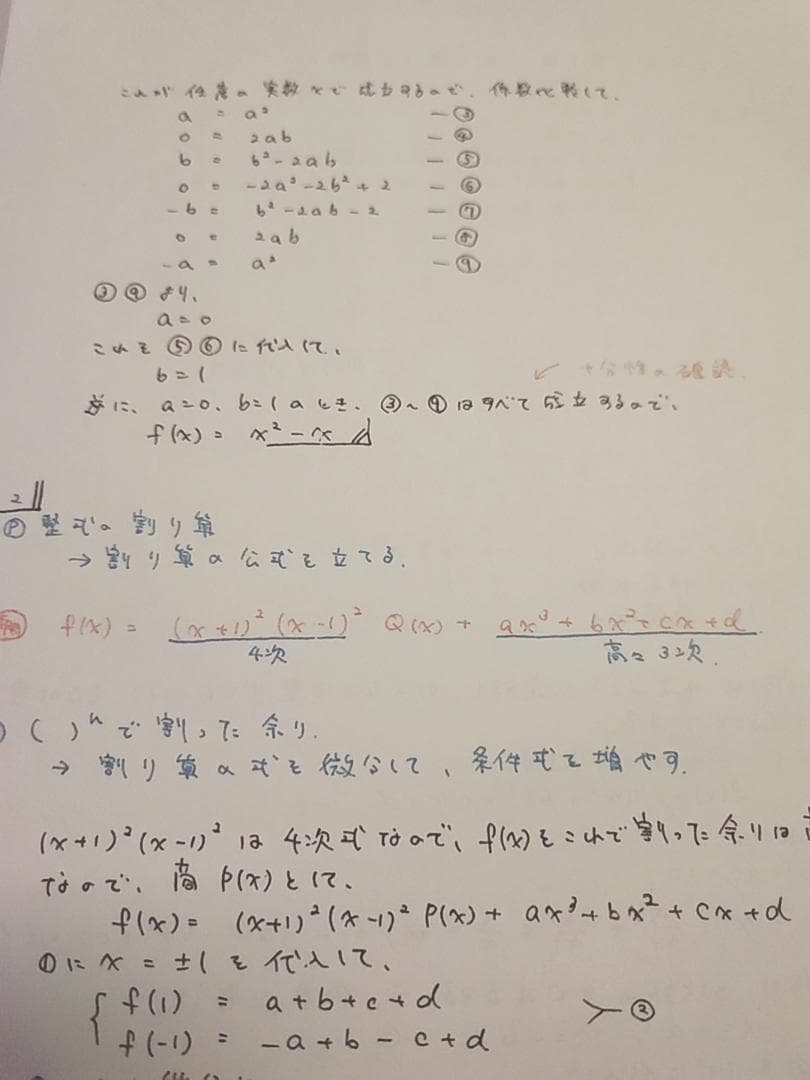 これが 任意の 実数 xで 成立するので、係数比較して、
a = a² ―③
0 = 2ab ―④
b = b² - 2ab ―⑤
0 = -2a² - 2b² + 2 ―⑥
-b = b² - 2ab - 2 ―⑦
0 = 2ab ―⑧
-a = a² ―⑨
③⑨より、
a = 0
これを ⑤⑥に代入して、
b = 1
↙ 十分性の確認
逆に、a=0、b=1のとき、③〜⑨はすべて成立するので、
f(x) = x² - x
2
Ⓟ 整式の割り算
→ 割り算の公式を立てる.
f(x) = (x+1)²(x-1)² Q(x) + ax³ + bx² + cx + d
4次 高々3次.
) ( )ⁿで割った余り.
→ 割り算の式を微分して、条件式を増やす.
(x+1)²(x-1)² は 4次式なので、f(x)をこれで割った余りは
なので、商 P(x)として、
f(x) = (x+1)²(x-1)² P(x) + ax³ + bx² + cx + d
①に x = ±1 を 代入して、
f(1) = a + b + c + d
f(-1) = -a + b - c + d
②